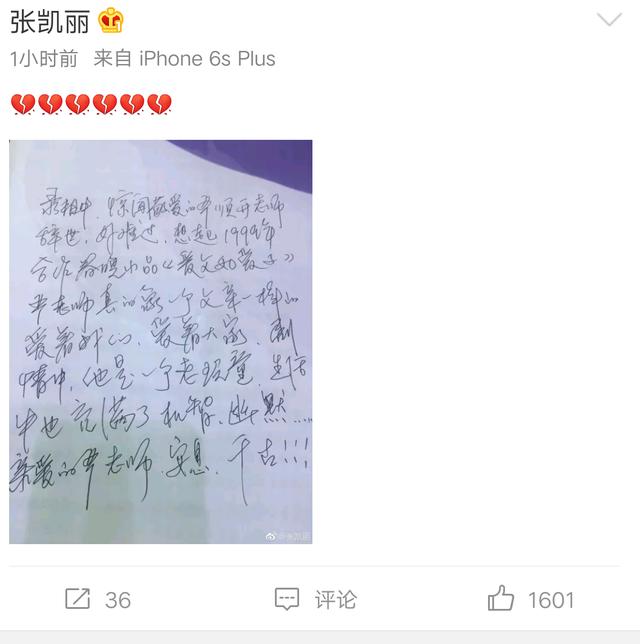 张凯丽
1小时前 来自 iPhone 6s Plus
录相中,惊闻敬爱的严顺开老师
辞世,好难过,想起1999年
合作春晚小品《爱父如爱子》
严老师真的象一个父亲一样的
爱着我们,爱着大家,剧
情中,他是一个老顽童,生活
中也充满了机智、幽默……
亲爱的严老师,安息,千古!!!
@张凯丽
36
评论
1601